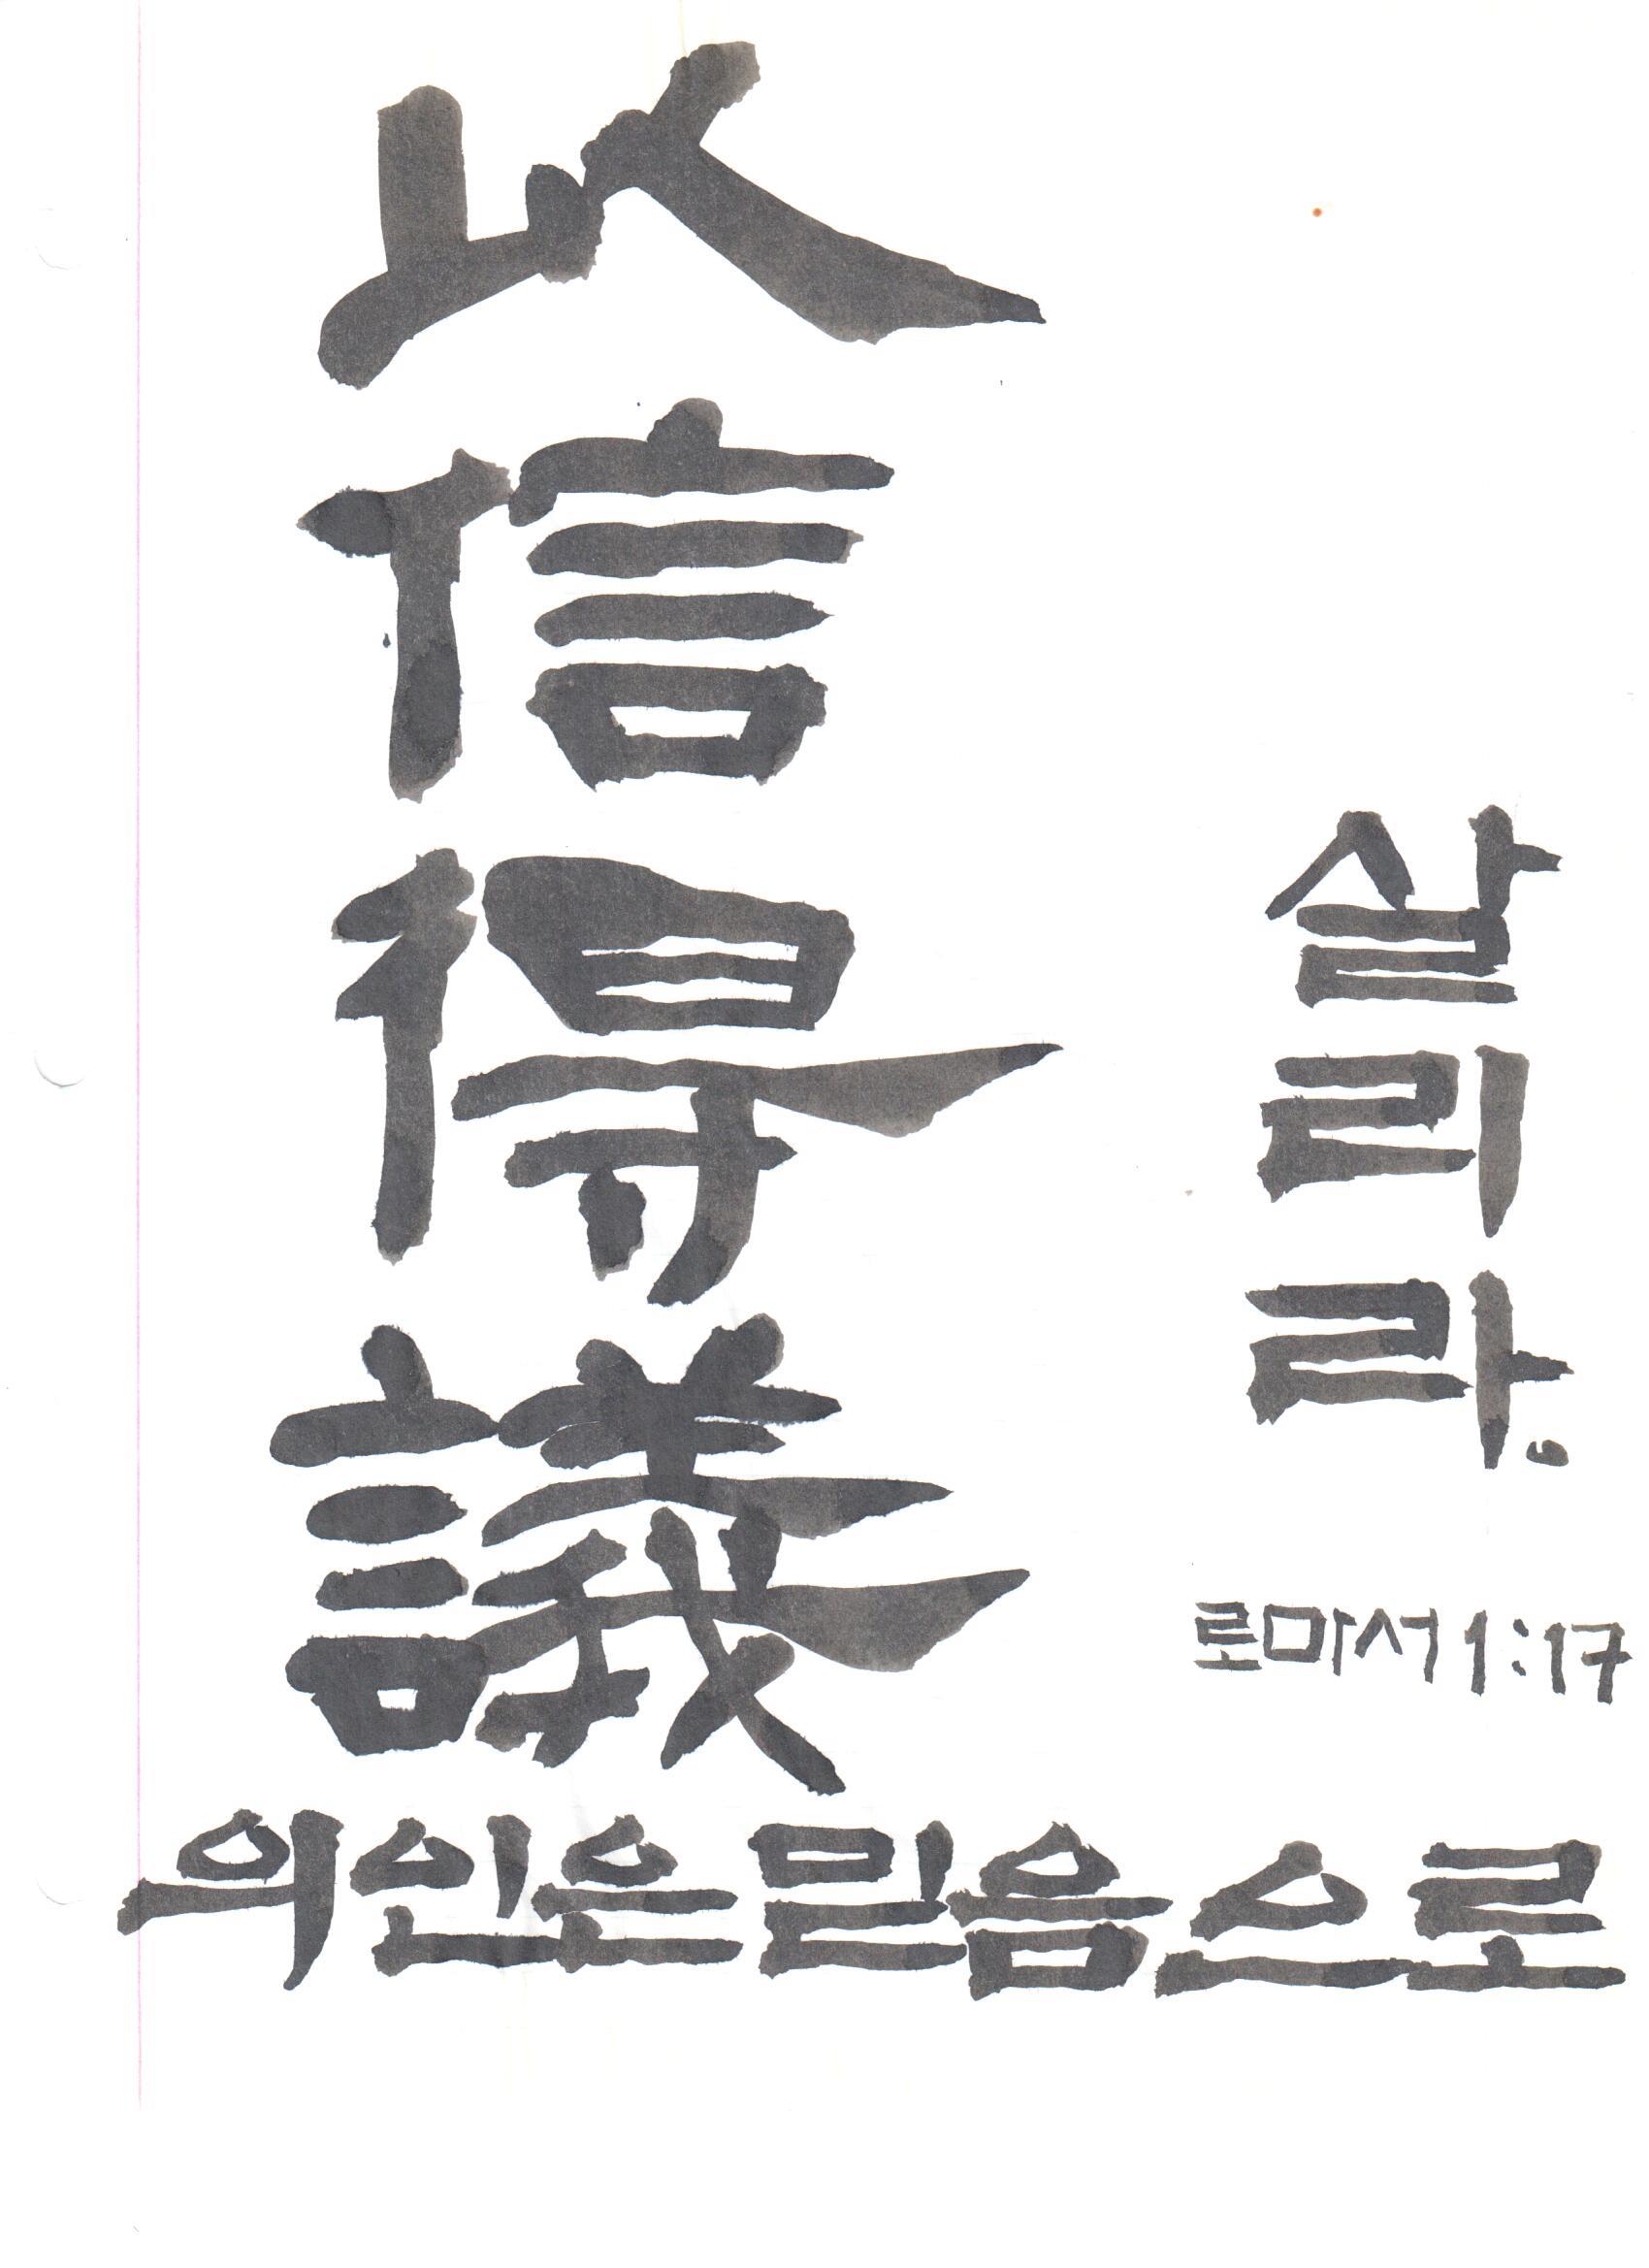 以信得議
의인은 믿음으로
살리라.
로마서 1:17